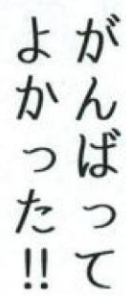 がんばって
よかった!!